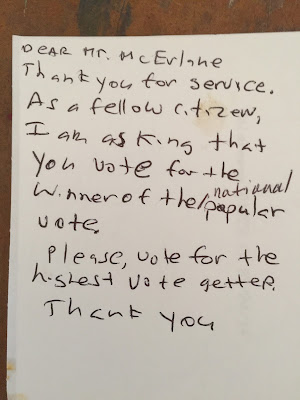 DEAR Mr. McErlane
Thank you for service.
As a fellow citizen,
I am asking that
you vote for the
winner of the/national popular
vote.
Please, vote for the
highest vote getter.
Thank you